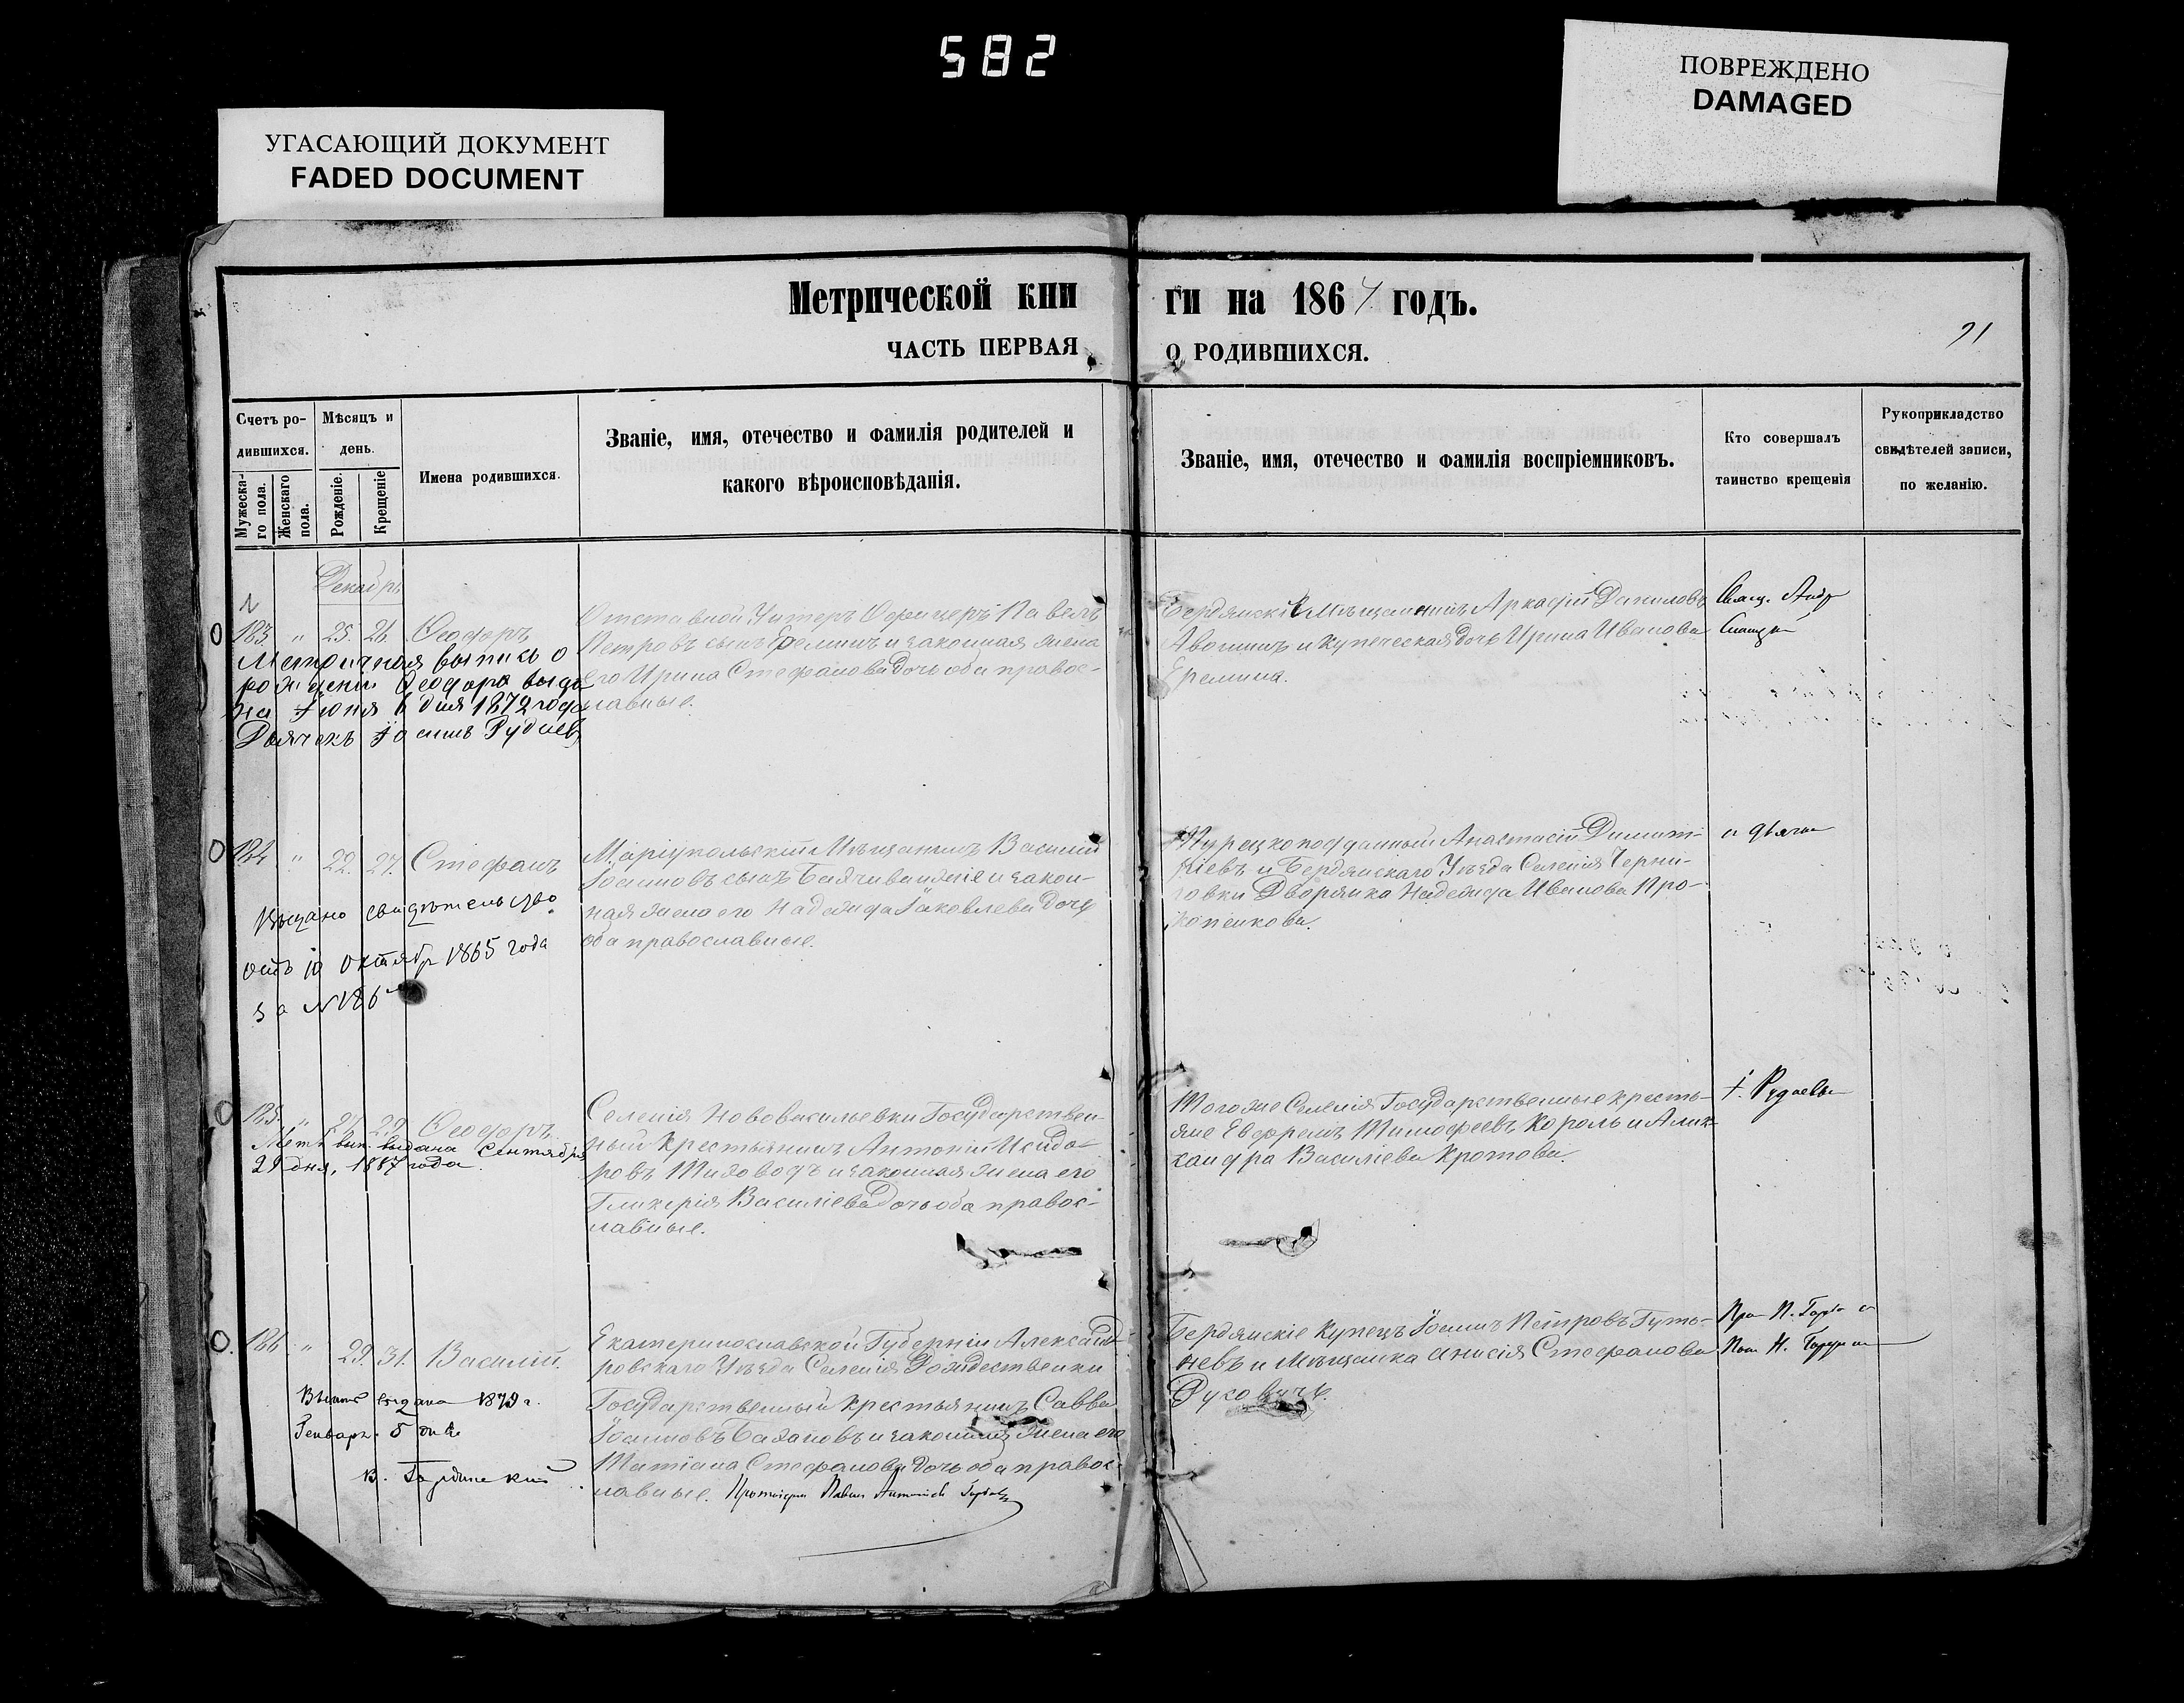 582
УГАСАЮЩИЙ ДОКУМЕНТ
FADED DOCUMENT
ПОВРЕЖДЕНО
DAMAGED
Метрической кни
ги на 1864 годъ.
ЧАСТЬ ПЕРВАЯ
О РОДИВШИХСЯ.
Счетъ ро-
дившихся.
Мужеска-
го пола.
Женскаго
пола.
Мѣсяцъ и
день.
Рожденіе.
Крещеніе
Имена родившихся.
Званіе, имя, отечество и фамилія родителей и
какого вѣроисповѣданія.
Званіе, имя, отечество и фамилія воспріемниковъ.
Кто совершалъ
таинство крещенія
Рукоприкладство
свидѣтелей записи,
по желанію.
Декабрь
183 " 25. 26. Ѳеодоръ
Метричная выпись о
рожденіи Ѳеодора выда
на Іюня 6 дня 1872 года
Дьячекъ Іоаннъ Рудиевъ
Отставной Унтеръ Офицеръ Павелъ
Петровъ сынъ и законная жена
его Ирина Стефанова дочь оба правос-
лавные.
Бердянскій Мѣщанинъ Аркадій Даниловъ
и купеческая дочь Ирина Иванова
Еремина.
Свящ. Андр
184 " 22. 27. Стефанъ
Выдано свидѣтельство
отъ 10 октябр 1865 года
за №186
Маріупольскій Мѣщанинъ Василій
Іоанновъ сынъ и закон-
ная жена его Надежда Іаковлева дочь
оба православные.
Турецкоподданный Анастасій Димит-
ріевъ и Бердянскаго Уѣзда Селенія Черни-
говки Дворянка Надежда Иванова Про-
копенкова.
и дьячек
185. " 27. 29. Ѳеодоръ
Метр. вып. выдана Сентября
29 дня, 1887 года.
Селенія Нововасильевки Государствен-
ный крестьянинъ Антоній Исидо-
ровъ и законная жена его
Гликерія Василіева дочь оба правос-
лавные.
Того же Селенія Государственные кресть-
яне Евфремъ Тимофеевъ Король и Алек-
сандра Василіева Кротова.
І. Рудаевъ
186 " 29. 31. Василій.
выдана 1879 г.
Генваря 5 дня
Екатеринославской Губерніи Александ-
ровскаго Уѣзда Селенія Рождественки
Государственный крестьянинъ Савва
Іоанновъ и законная жена его
Татіана Стефанова дочь оба правос-
лавные. Протоіерей Павелъ
Бердянскіе купецъ Іоаннъ Петровъ Гуто-
невъ и Мѣщанка Анисія Стефанова